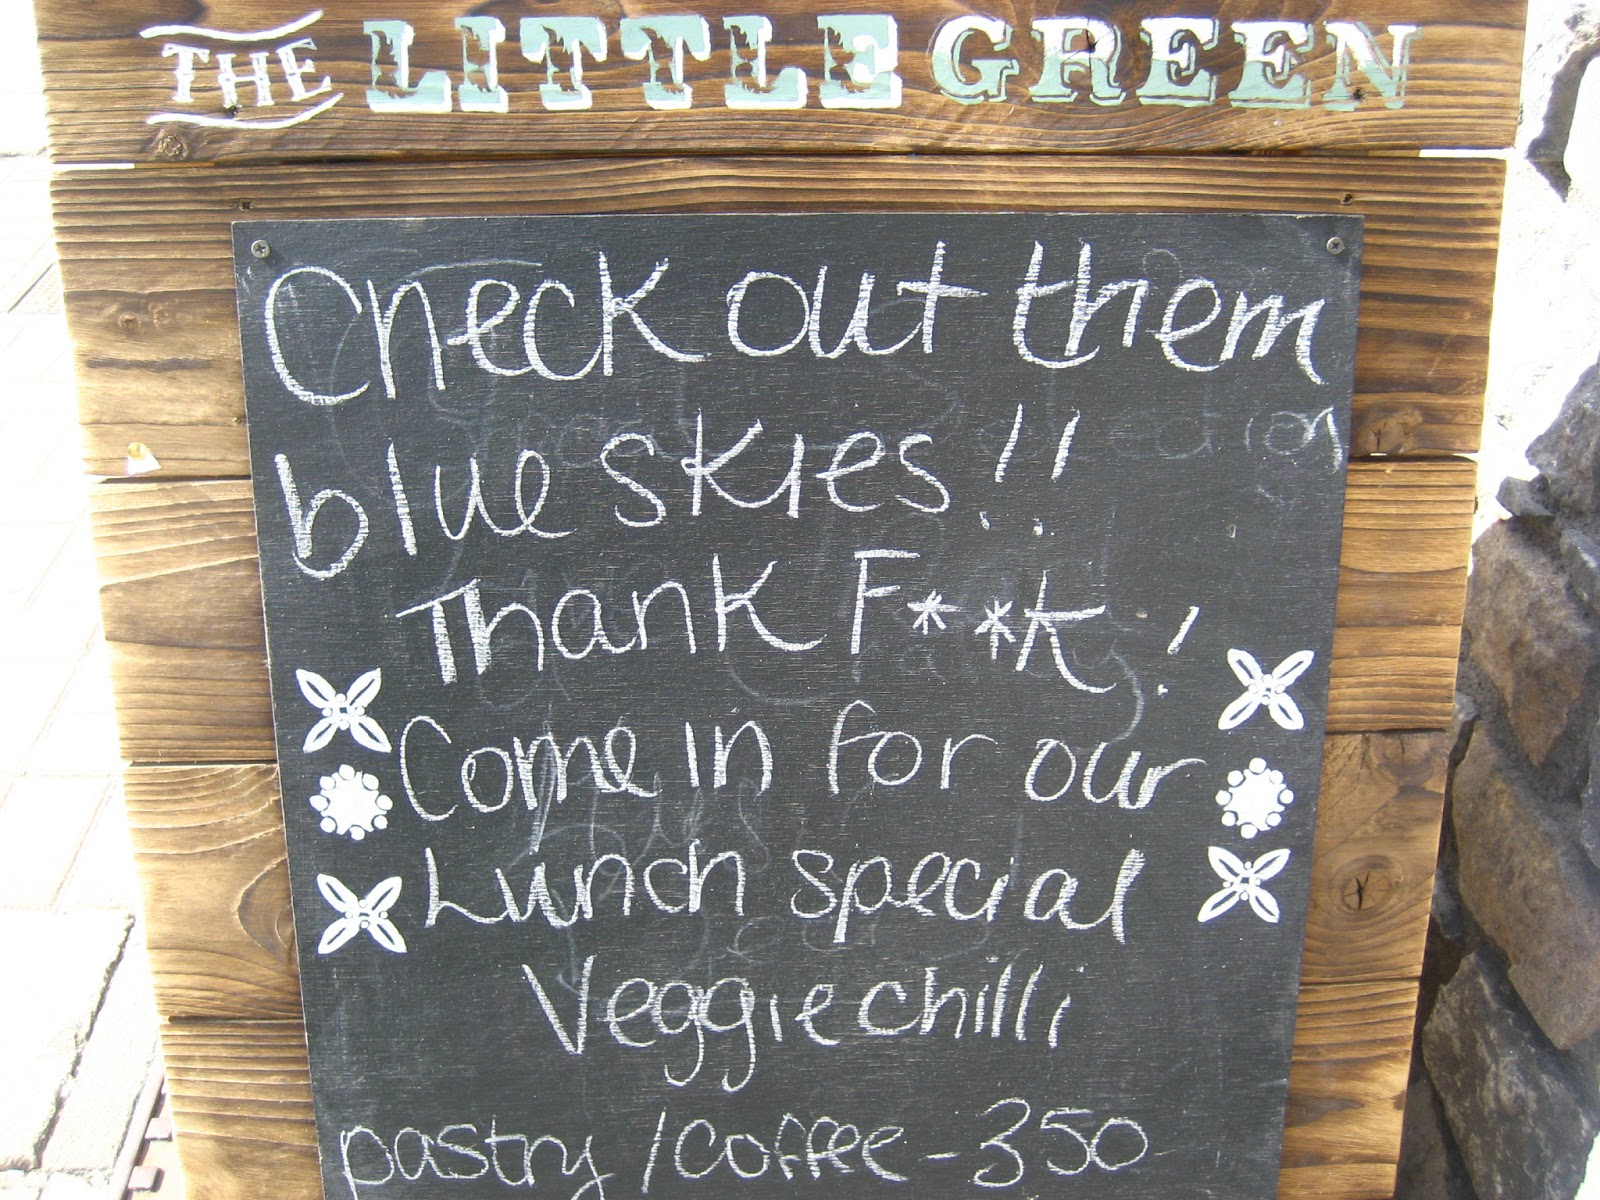 THE LITTLE GREEN
Check out them
blue skies!!
Thank F**k!
Come in for our
Lunch special
Veggie chilli
pastry / coffee - 350